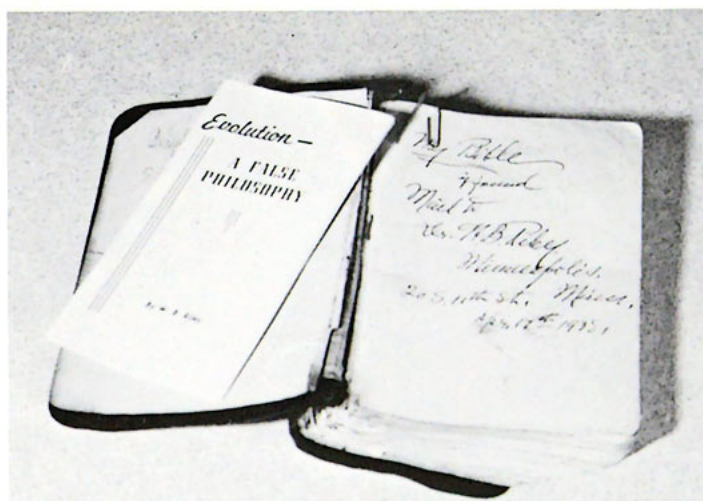 Evolution —
A FALSE
PHILOSOPHY
My Bible
If found
Mail to
Dr. W B Riley
Minneapolis.
20 S. 11th St. Minn.